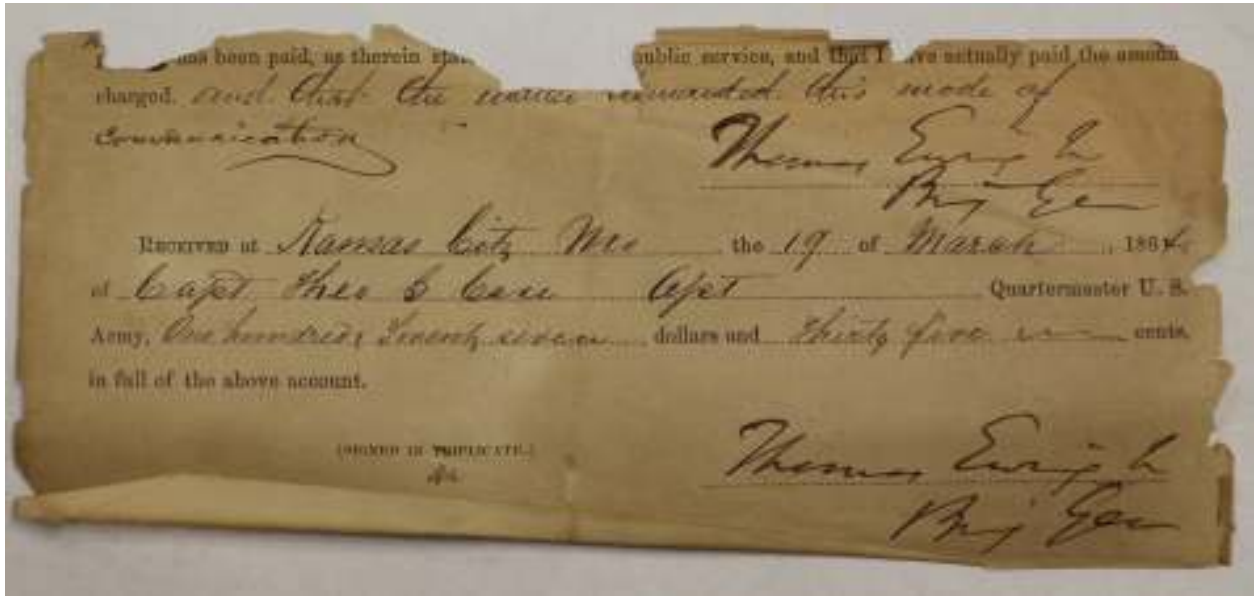 has been paid, as therein public service, and that I have actually paid the amount
charged. and that the nature demanded this mode of
Communication
Thomas Ewing Jr
Brig Gen
RECEIVED at Kansas City Mo the 19 of March, 1864
of Capt Theo S Case Asst Quartermaster U. S.
Army, One hundred Twenty seven dollars and Thirty five cents,
in full of the above account.
(SIGNED IN TRIPLICATE.)
Thomas Ewing Jr
Brig Gen